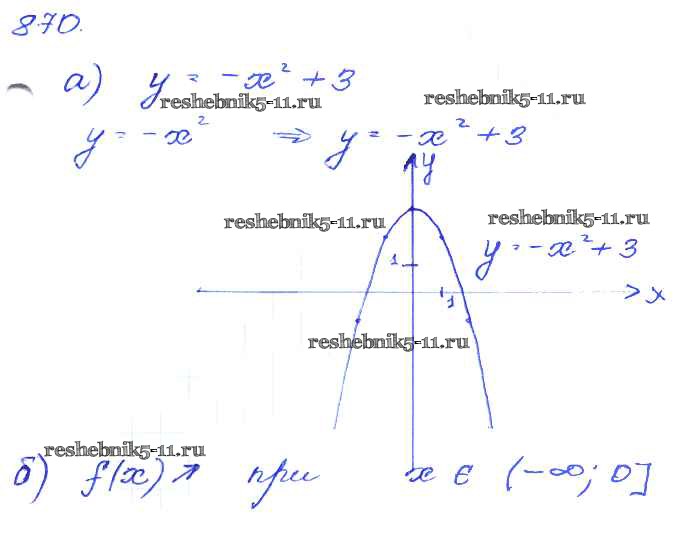 870.
а) y = -x² + 3
reshebnik5-11.ru reshebnik5-11.ru
y = -x² ⇒ y = -x² + 3
y
reshebnik5-11.ru reshebnik5-11.ru
y = -x² + 3
1
1 x
reshebnik5-11.ru
reshebnik5-11.ru
б) f(x) ↗ при x ∈ (-∞; 0]